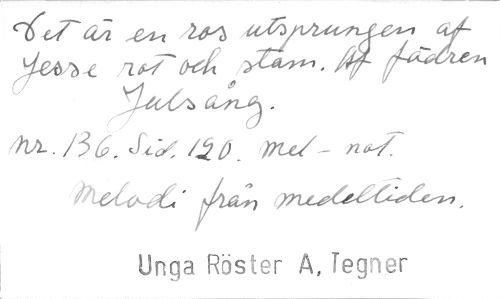 Det är en ros utsprungen af
Jesse rot och stam. Af fädren
Julsång.
nr. 136. Sid. 120. mel - not.
Melodi från medeltiden.
Unga Röster A, Tegner